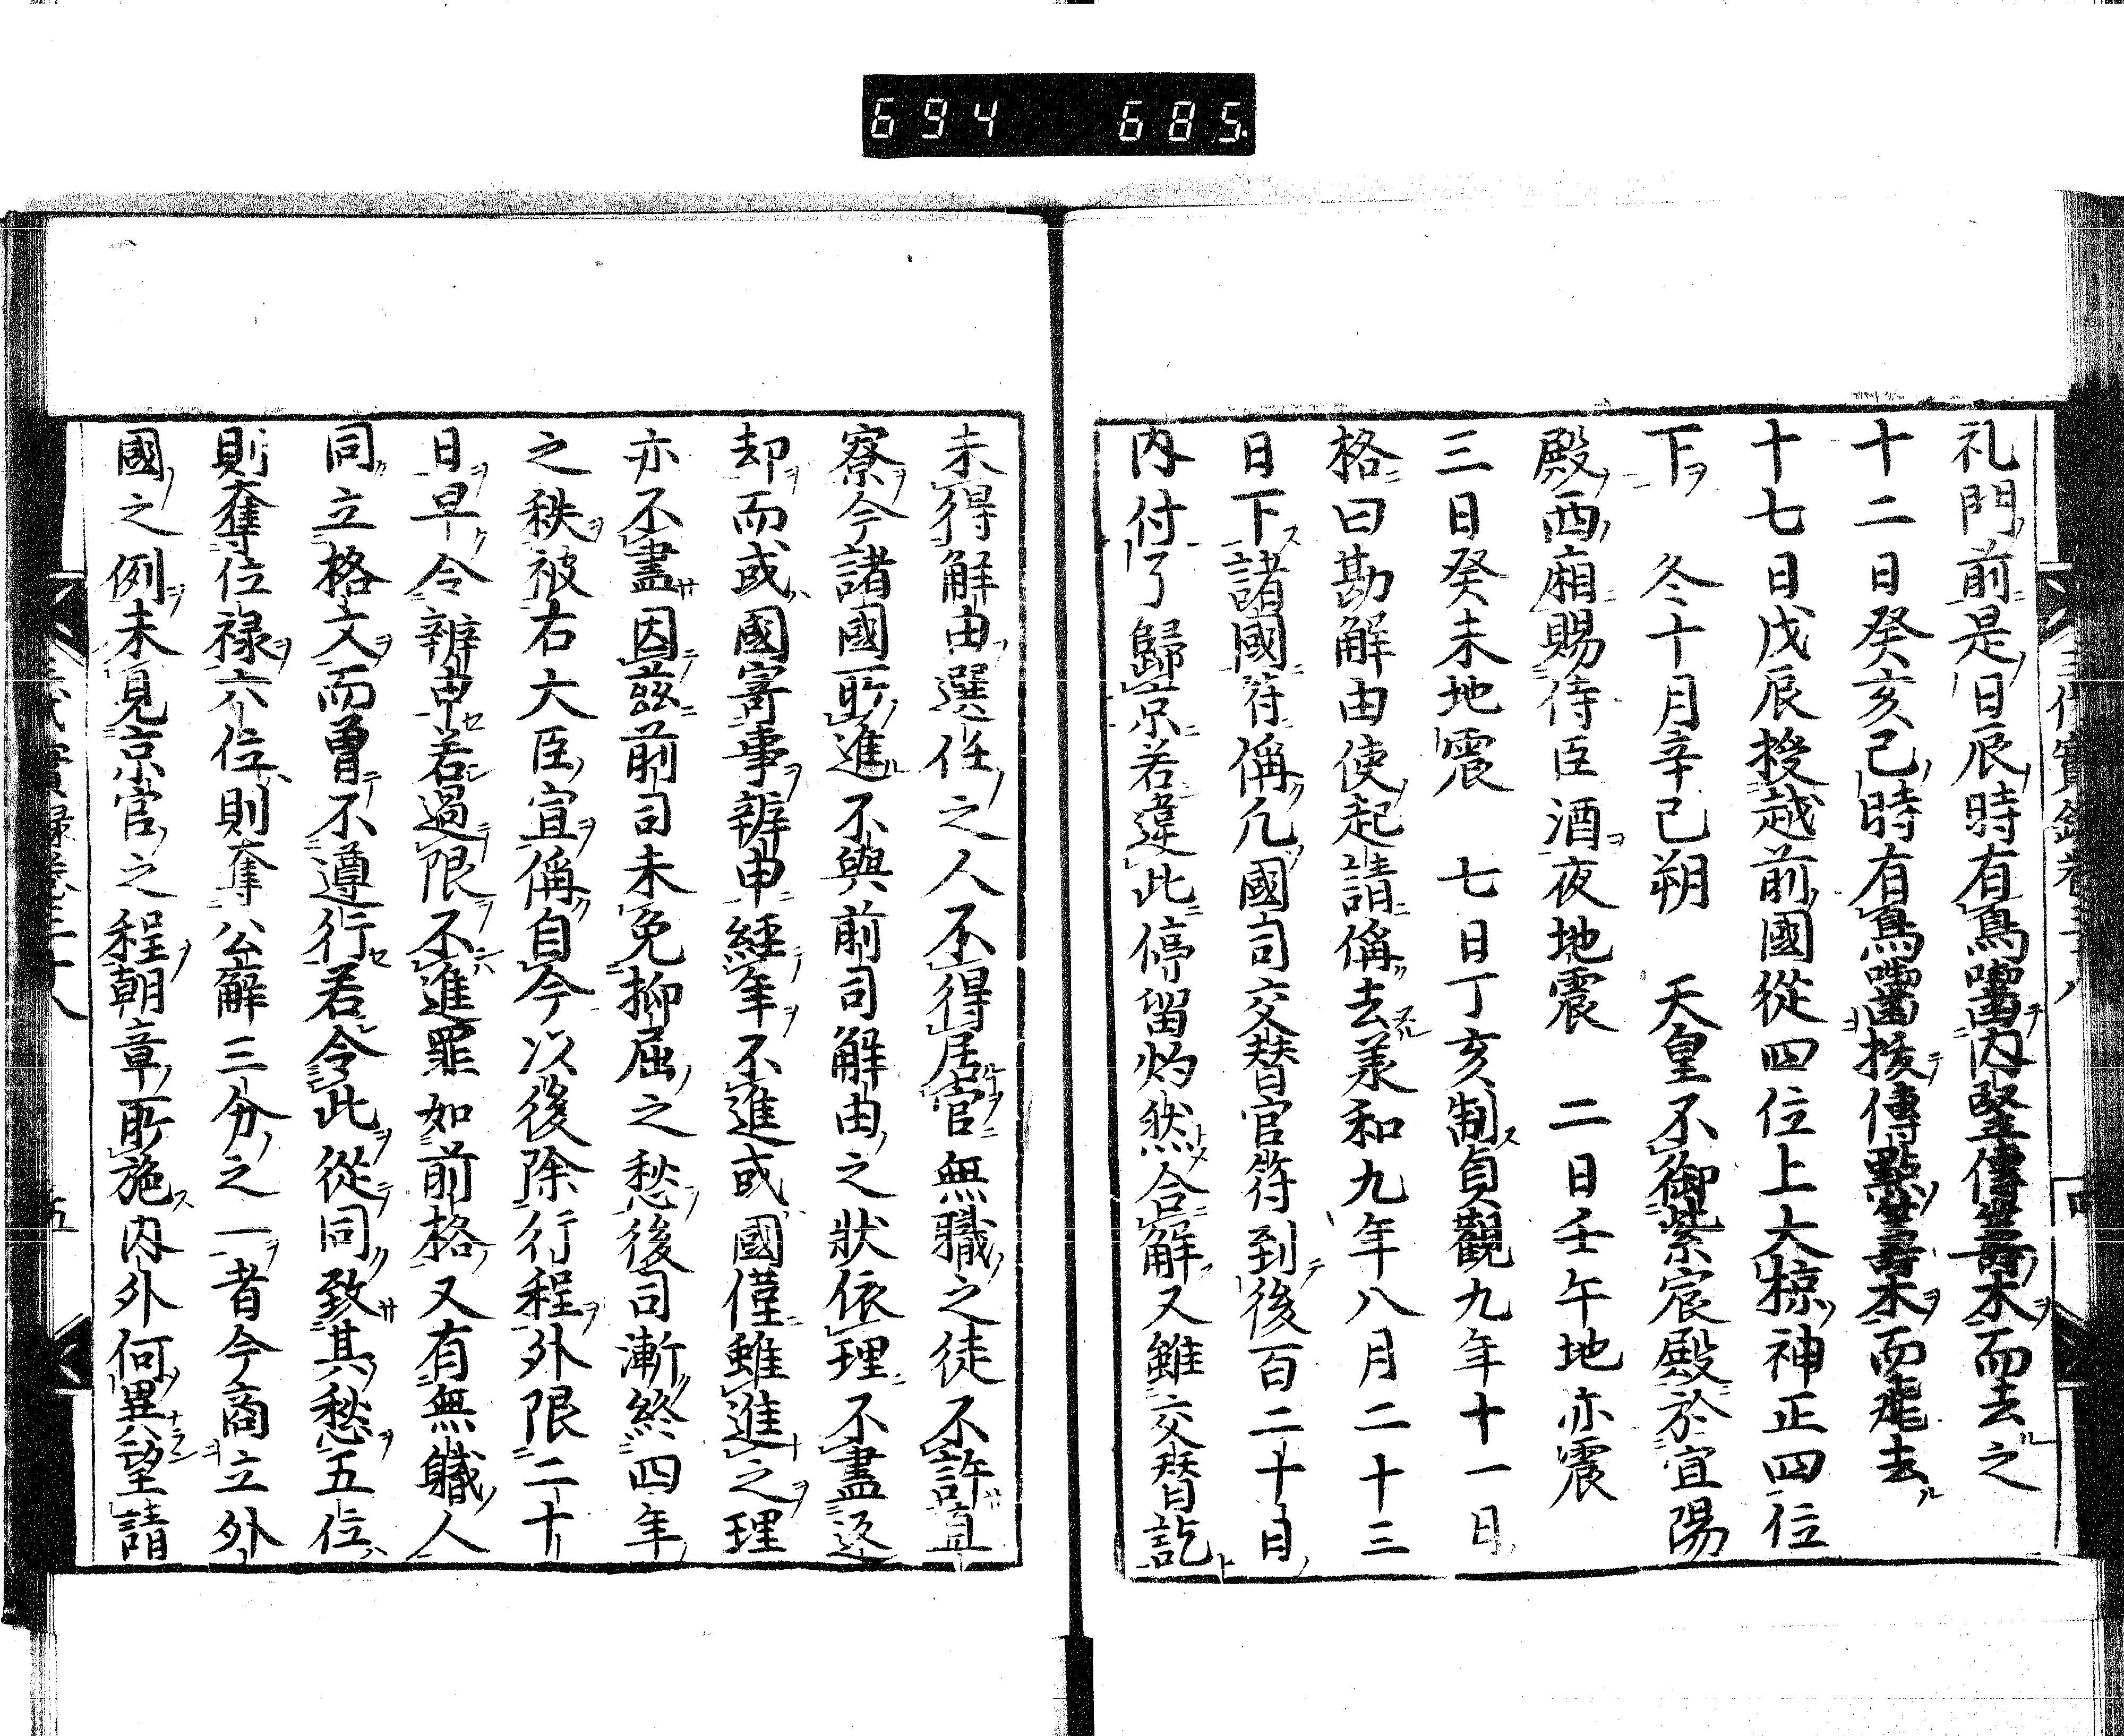 694 685.
礼門前是日辰時有鳥嚙内竪傳籌木而去之
十二日癸亥己時有鳥嚙拔傳點籌木而飛去
十七日戊辰授越前國從四位上大椋神正四位
下 冬十月辛己朔 天皇不御紫宸殿於宜陽
殿西廂賜侍臣酒夜地震 二日壬午地亦震
三日癸未地震 七日丁亥制貞觀九年十一日
格曰勘解由使起請偁去羕和九年八月二十三
日下諸國符偁凡國司交替官符到後百二十日
内付了歸京若違此停留灼然合解又雖交替訖
未得解由選任之人不得居官無職之徒不許直
寮今諸國所進不與前司解由之狀依理不盡返
却而或國寄事辨申經年不進或國僅雖進之理
亦不盡因茲前司未免抑屈之愁後司漸終四年
之秩被右大臣宣偁自今以後除行程外限二十
日早令辨申若過限不進罪如前格又有無職人
同立格文而曾不遵行若令此從同致其愁五位
則奪位禄六位則奪公廨三分之一者今商立外
國之例未見京官之程朝章所施内外何異望請
三代實錄卷三十八
五